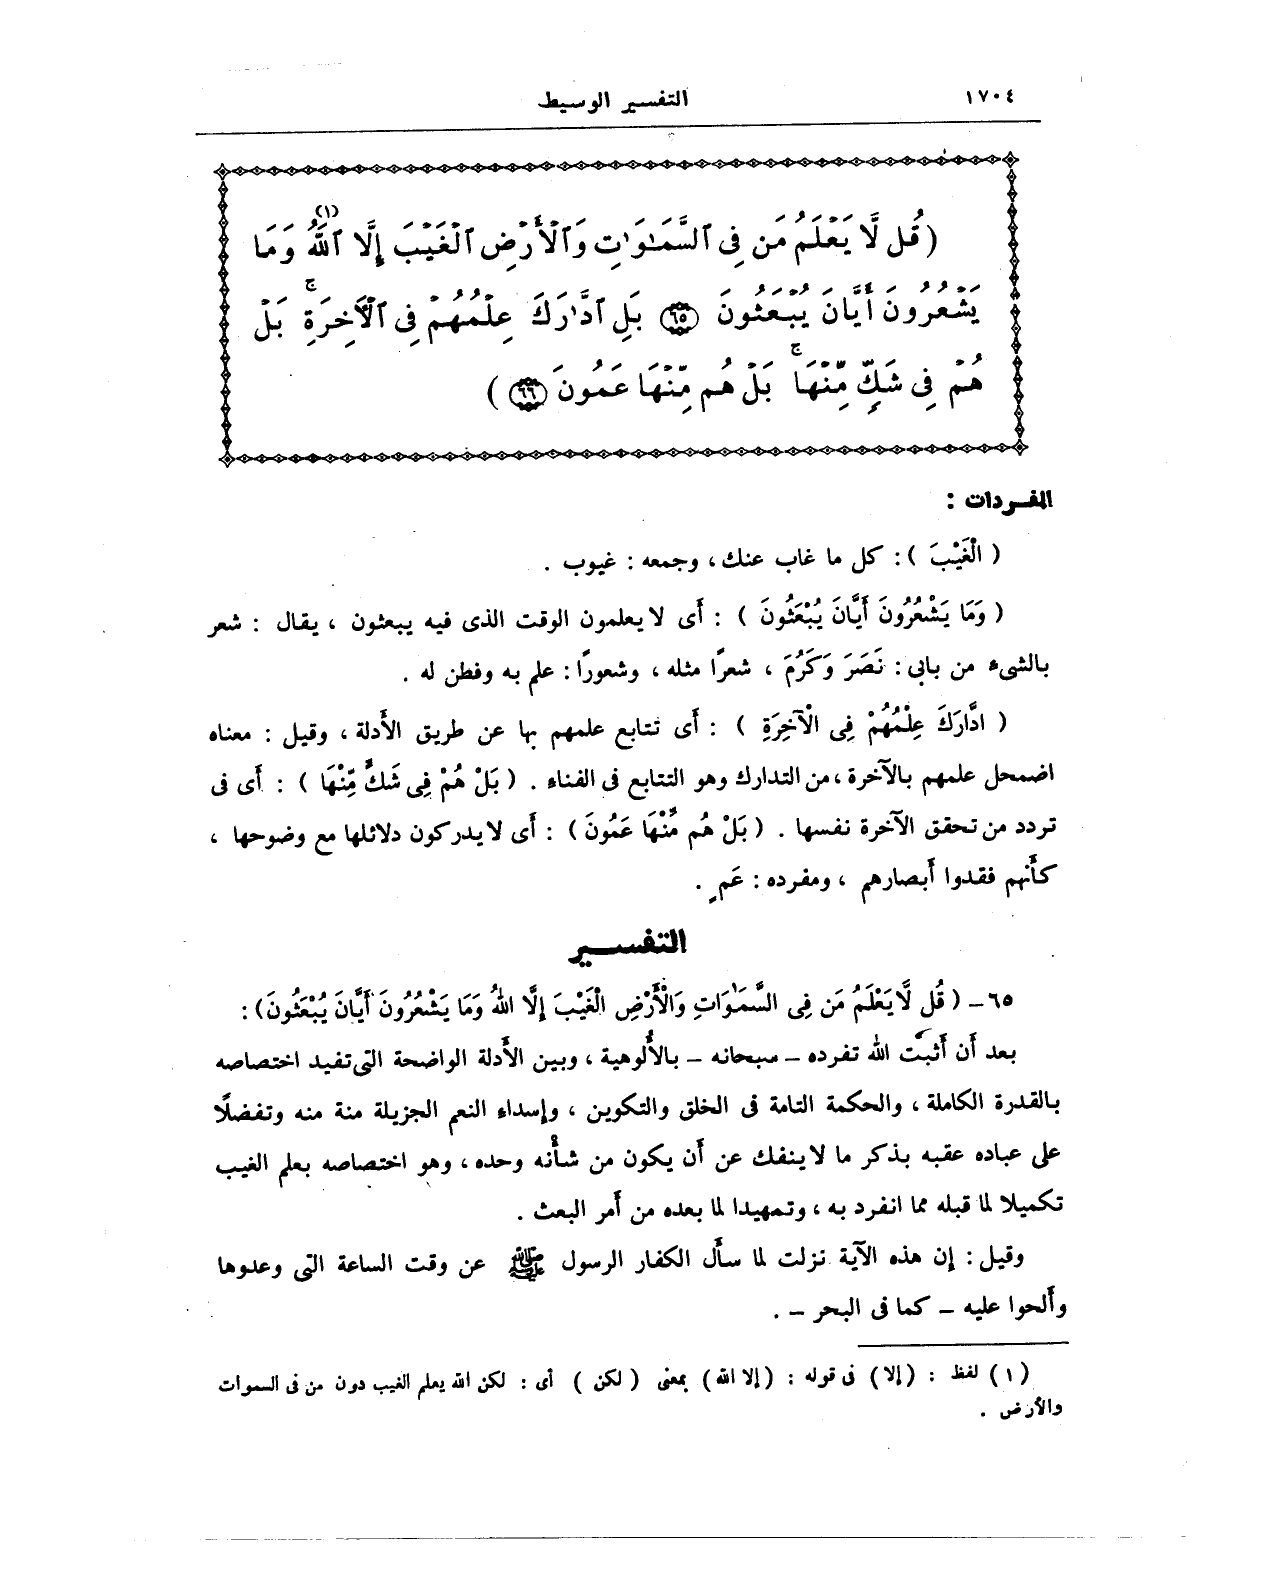 ١٧٠٤ التفسير الوسيط
( قُل لَّا يَعْلَمُ مَن فِى ٱلسَّمَـٰوَٰتِ وَٱلْأَرْضِ ٱلْغَيْبَ إِلَّا ٱللَّهُ (١) وَمَا
يَشْعُرُونَ أَيَّانَ يُبْعَثُونَ ٦٥ بَلِ ٱدَّٰرَكَ عِلْمُهُمْ فِى ٱلْأَخِرَةِ ۚ بَلْ
هُمْ فِى شَكٍّ مِّنْهَا ۚ بَلْ هُم مِّنْهَا عَمُونَ ٦٦ )
المفـردات :
( الْغَيْبَ ) : كل ما غاب عنك ، وجمعه : غيوب .
( وَمَا يَشْعُرُونَ أَيَّانَ يُبْعَثُونَ ) : أَى لا يعلمون الوقت الذى فيه يبعثون ، يقال : شعر
بالشىء من بابى : نَصَرَ وَكَرُمَ ، شعرًا مثله ، وشعورًا : علم به وفطن له .
( ادَّارَكَ عِلْمُهُمْ فِى الْآخِرَةِ ) : أَى تتابع علمهم بها عن طريق الأَدلة ، وقيل : معناه
اضمحل علمهم بالآخرة ، من التدارك وهو التتابع فى الفناء . ( بَلْ هُمْ فِى شَكٍّ مِّنْهَا ) : أَى فى
تردد من تحقق الآخرة نفسها . ( بَلْ هُم مِّنْهَا عَمُونَ ) : أَى لا يدركون دلائلها مع وضوحها ،
كأَنهم فقدوا أَبصارهم ، ومفرده : عَمٍ .
التفســير
٦٥ - ( قُل لَّا يَعْلَمُ مَن فِى السَّمَـٰوَاتِ وَالْأَرْضِ الْغَيْبَ إِلَّا اللهُ وَمَا يَشْعُرُونَ أَيَّانَ يُبْعَثُونَ ) :
بعد أَن أَثبت الله تفرده - سبحانه - بالأُلوهية ، وبين الأَدلة الواضحة التى تفيد اختصاصه
بالقدرة الكاملة ، والحكمة التامة فى الخلق والتكوين ، وإسداء النعم الجزيلة منة منه وتفضلًا
على عباده عقبه بذكر ما لا ينفك عن أَن يكون من شأْنه وحده ، وهو اختصاصه بعلم الغيب
تكميلا لما قبله مما انفرد به ، وتمهيدا لما بعده من أَمر البعث .
وقيل : إن هذه الآية نزلت لما سأَل الكفار الرسول ﷺ عن وقت الساعة التى وعدوها
وأَلحوا عليه - كما فى البحر - .
( ١ ) لفظ : ( إلا ) فى قوله : ( إلا الله ) بمعنى ( لكن ) أى : لكن الله يعلم الغيب دون من فى السموات
والأرض .